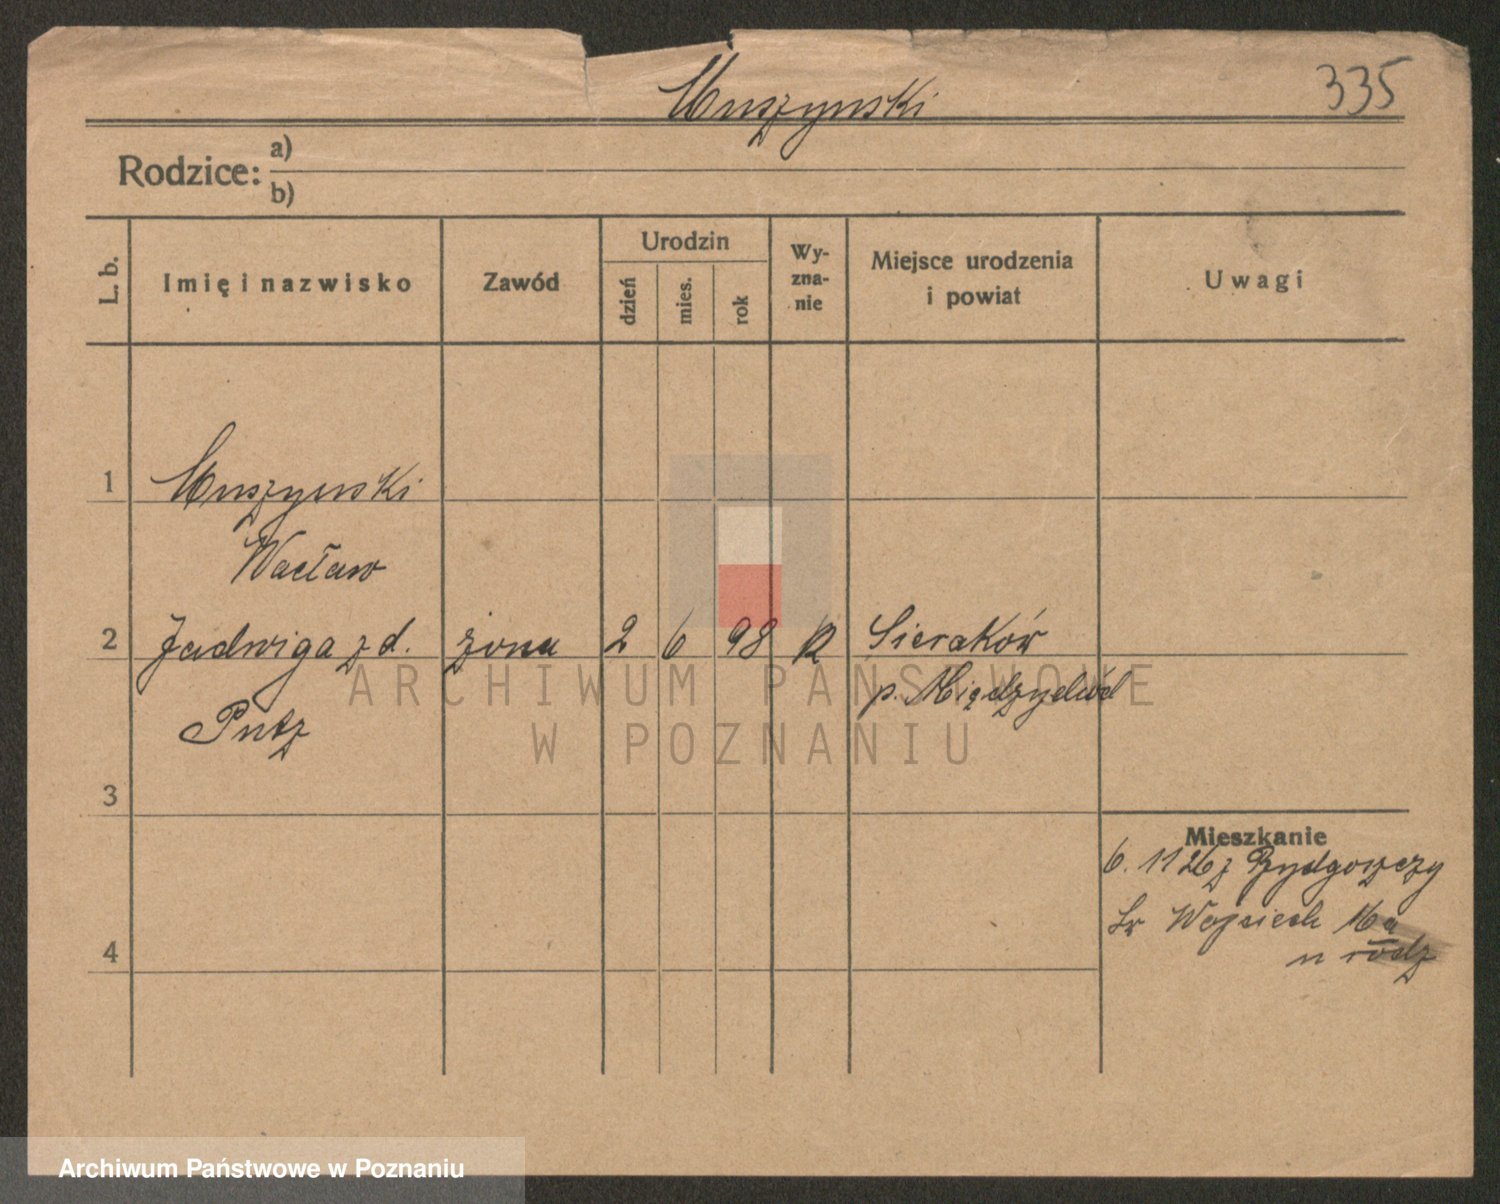 Muszynski 335
Rodzice: a)
b)
L. b. Imię i nazwisko Zawód Urodzin dzień mies. rok Wy-zna-nie Miejsce urodzenia i powiat Uwagi
1 Muszynski
Wacław
2 Jadwiga z d. żona 2 6 98 R Sieraków
Putz p. Międzychód
3
4
Mieszkanie
6. 11 26 z Bydgoszczy
Św Wojciech 16 a
u rodz
ARCHIWUM PAŃSTWOWE
W POZNANIU
Archiwum Państwowe w Poznaniu